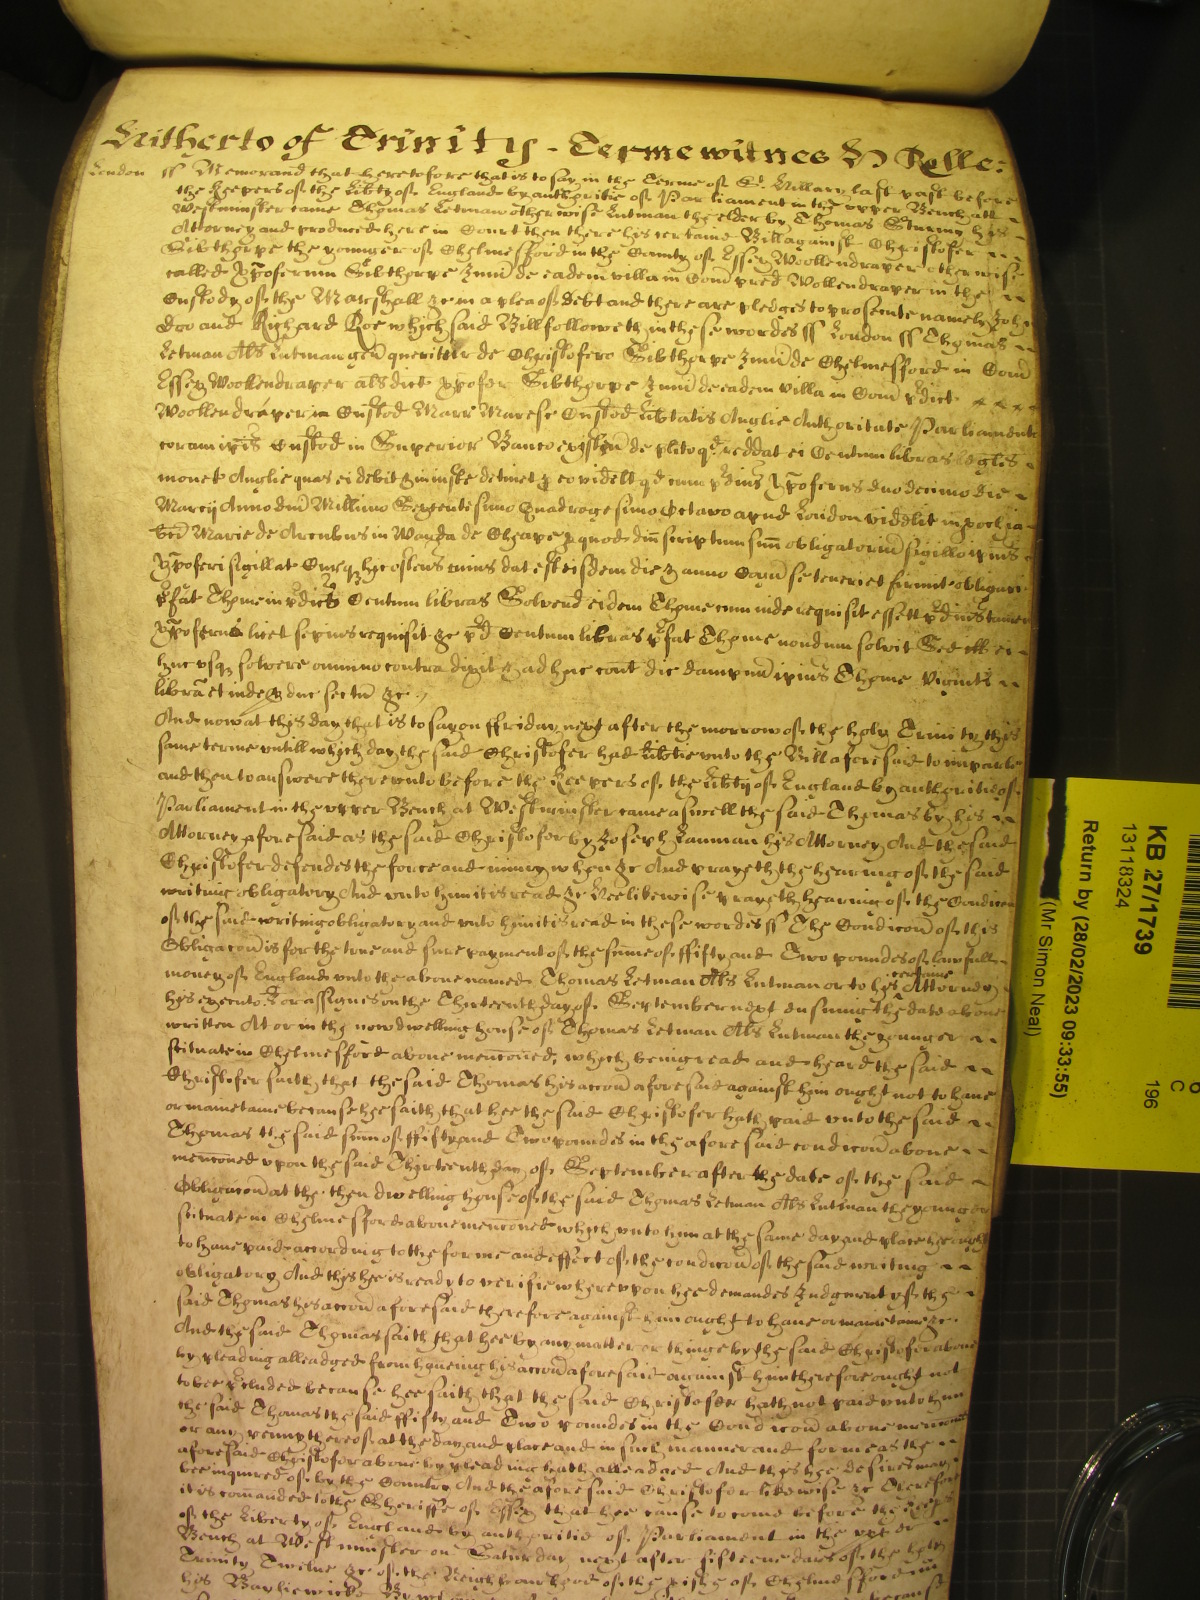 Hitherto of Trinity - Terme witnes H Rolle:
London ss Memorand that heretofore that is to say in the Terme of St. Hillary last past before
the Keepers of the Libty of England by authoritie of Parliament in the upper Bench att
Westminster came Thomas Letman otherwise Lutman the elder by Thomas Sturmy his
Attorney and produced here in Court then there his certaine Bill against Christofer
Sibthorpe the younger of Chelmesford in the County of Essex Woollendraper otherwise
called Xpoferum Sibthorpe Junr de eadem villa in Com pred Wollendraper in the
Custody of the Marshall &c in a plea of Debt and there are pledges to prosecute namely John
Doo and Richard Roe which said Bill followeth in these wordes ss London ss Thomas
Letman Als Lutman gen queritur de Christofero Sibthorpe Junr de Chelmesford in Com
Essex Woollendraper als dict Xpofer Sibthorpe Junr de eadem villa in Com pdict
Woollendraper in Custod Marr Marese Custod libtatis Anglie Authoritate Parliamenti
coram ipis Custod in Superior Banco existen de plito qd reddat ei Centum libras leglis
monete Anglie quas ei debet & iniuste detinet p eo videlt qd cum pdcus Xpoferus duodecimo die
Marcij Anno dni Millimo Sexcentesimo Quadragesimo Octavo apud London videlit in pochia
be Marie de Arcubus in Warda de Cheape p quoddm scriptum suu obligatorium sigillo ipius
Xpoferi sigillat Curq hic ostens cuius dat est eisdem die & anno Cogn se teneri et firmit obligari
pfat Thome in pdict Centum libras Solvend eidem Thome cum inde requisit essett pdcus tamen
Xpoferus licet sepius requisit &c pd Centum libras pfat Thome nondum solvit Sed ill ei
huc usq solvere omnino contradixit & adhuc cont dic dampnu ipius Thome viginti
libra et inde p duc sectu &c
And now at this day that is to say on ffriday next after the morrow of the holy Trinity this
same terme untill which day the said Christofer had libtie unto the Bill aforesaid to imparle
and then to answere thereunto before the Keepers of the Libty of England by authoritie of
Parliament in the upper Bench at Westminster came aswell the said Thomas by his
Attorney aforesaid as the said Christofer by Joseph Lanman his Attorney And the said
Christofer defendes the force and iniury when &c And prayeth the hearing of the said
writing obligatory And unto him it is read &c Hee likewise prayeth hearing of the Condicon
of the said writing obligatory and unto him it is read in these wordes ss The Condicon of this
Obligacon is for the true and sure payment of the sume of ffifty and Two poundes of lawfull
money of England unto the above named Thomas Letman Als Lutman or to his certaine Attorney
his executors or assignes on the Thirteenth day of September next ensuing the date above
written At or in the now dwelling house of Thomas Letman Als Lutman the younger
scituate in Chelmesford above menconed, which being read and heard the said
Christofer saith that the said Thomas his accon aforesaid against him ought not to have
or mainetaine because hee saith that hee the said Christofer hath paid unto the said
Thomas the said sum of ffifty and Two poundes in the aforesaid condicon above
menconed upon the said Thirteenth day of September after the date of the said
Obligacon at the then dwelling house of the said Thomas Letman Als Lutman the younger
scituate in Chelmesford above menconed which unto him at the same day and place hee ought
to have paid according to the forme and effect of the condicon of the said writing
obligatory And this hee is ready to verifie whereupon hee demandes Judgment yf the
said Thomas his accon aforesaid therefore against him ought to have or mainetaine &c.
And the said Thomas saith that hee by any matter or thinge by the said Christofer above
by pleading alleadged from haveing his accon aforesaid against him therefore ought not
to bee pcluded because hee saith that the said Christofer hath not paid unto him
the said Thomas the said ffifty and Two poundes in the Condicon above menconed
or any penny thereof at the day and place and in such manner and forme as the
aforesaid Christofer above by pleading hath alleadged And this hee desires may
bee inquired of by the Country And the aforesaid Christofer likewise &c Therefore
it is comanded to the Sheriffe of Essex that hee cause to come before the keeps
of the Liberty of England by authoritie of Parliament in the upper
Bench at Westminster on Saturday next after fifteene dayes of the holy
Trinity Twelve &c of the Neighbourhood of the pish of Chelmesford in
his Bayliewicke By
KB 27/1739
13118324
Return by (28/02/2023 09:33:55)
(Mr Simon Neal)
196
C
6